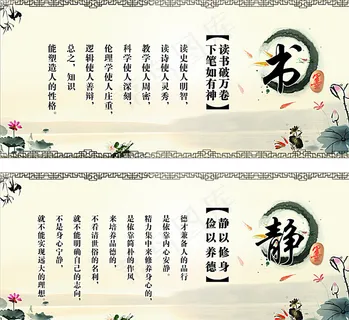 书
【读书破万卷
下笔如有神】
读史使人明智，
读诗使人灵秀，
数学使人周密，
科学使人深刻，
伦理学使人庄重，
逻辑使人善辩，
总之，知识
能塑造人的性格。
静
【静以修身
俭以养德】
德才兼备人的品行
是依靠内心安静，
精力集中来修养身心的，
是依靠简朴的作风，
来培养品德的。
不看清世俗的名利，
就不能明确自己的志向，
不是身心宁静，
就不能实现远大的理想。